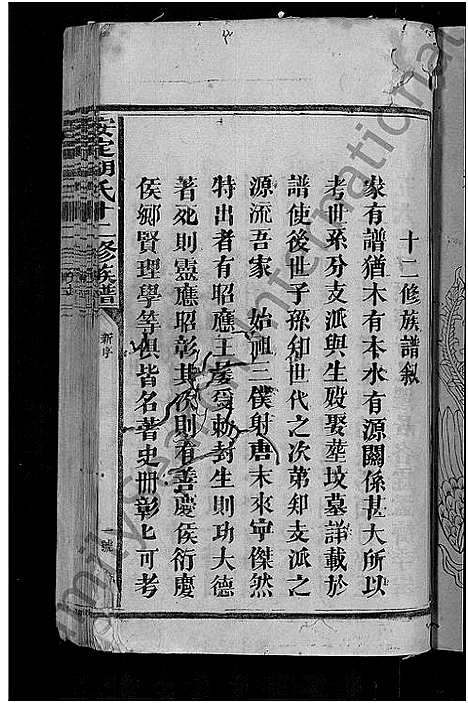 十二修族譜敘
家有譜猶木有本水有源關係甚大所以
考世系分支派與生殁娶葬坟墓詳載於
譜使後世子孫知世代之次第知支派之
源流吾家 始祖三僕射唐末來寜傑然
特出者有昭應王蒙爰勅封生則功大德
著死則靈應昭彰其次則有善慶侯衍慶
侯鄉賢理學等俱皆名著史册彰匕可考
安定胡氏十二修族譜
新序
一號